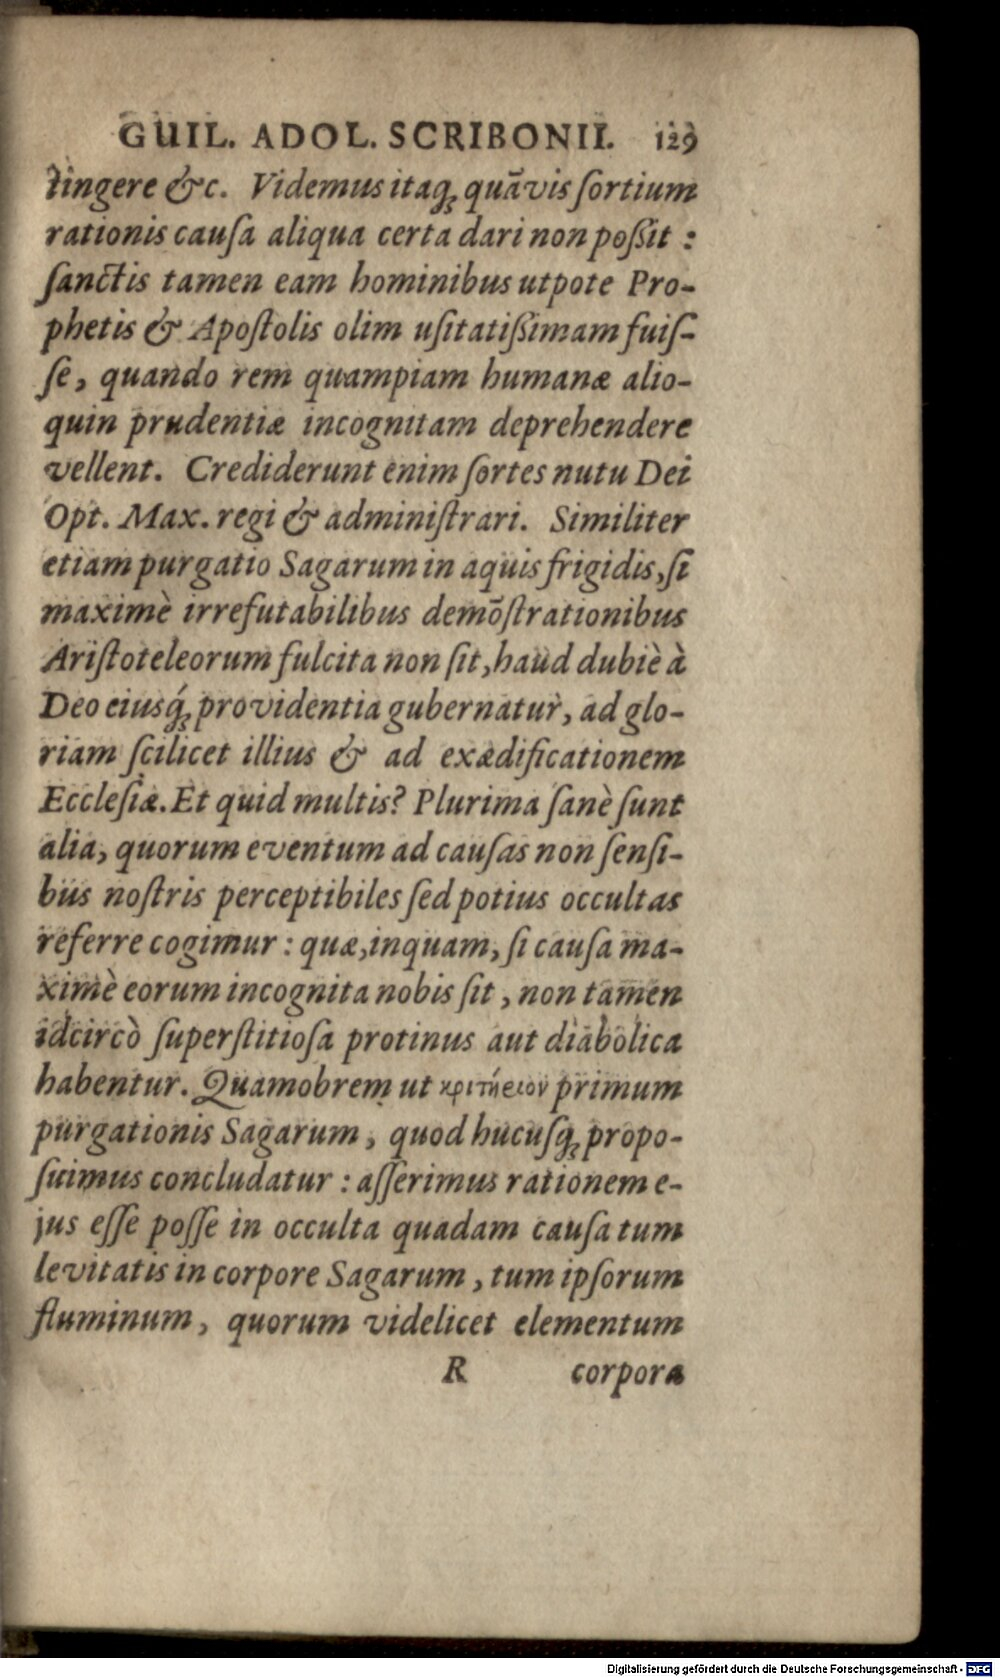 GUIL. ADOL. SCRIBONII. 129
tingere &c. Videmus itaq; quāvis ſortium
rationis cauſa aliqua certa dari non poßit :
ſanctis tamen eam hominibus utpote Pro-
phetis & Apoſtolis olim uſitatißimam fuiſ-
ſe, quando rem quampiam humanæ alio-
quin prudentiæ incognitam deprehendere
vellent. Crediderunt enim ſortes nutu Dei
Opt. Max. regi & adminiſtrari. Similiter
etiam purgatio Sagarum in aquis frigidis, ſi
maximè irrefutabilibus demōſtrationibus
Ariſtoteleorum fulcita non ſit, haud dubiè à
Deo eiusq́; providentia gubernatur, ad glo-
riam ſcilicet illius & ad exædificationem
Eccleſiæ. Et quid multis? Plurima ſanè ſunt
alia, quorum eventum ad cauſas non ſenſi-
bus noſtris perceptibiles ſed potius occultas
referre cogimur : quæ, inquam, ſi cauſa ma-
ximè eorum incognita nobis ſit, non tamen
idcircò ſuperſtitioſa protinus aut diabolica
habentur. Quamobrem ut κριτήριον primum
purgationis Sagarum, quod hucuſq; propo-
ſuimus concludatur : aſſerimus rationem e-
jus eſſe poſſe in occulta quadam cauſa tum
levitatis in corpore Sagarum, tum ipſorum
fluminum, quorum videlicet elementum
R corpora
Digitalisierung gefördert durch die Deutsche Forschungsgemeinschaft - DFG